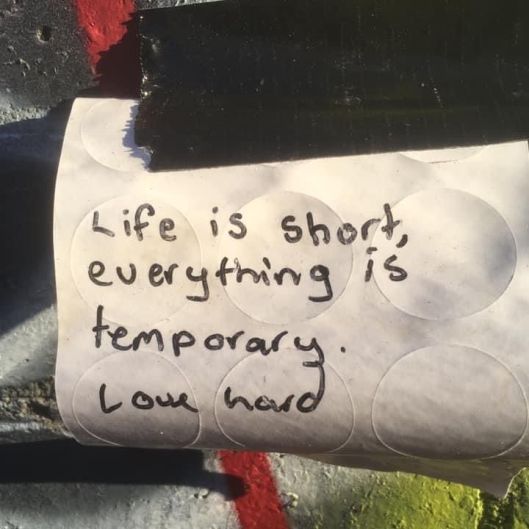 Life is short,
everything is
temporary.
Love hard